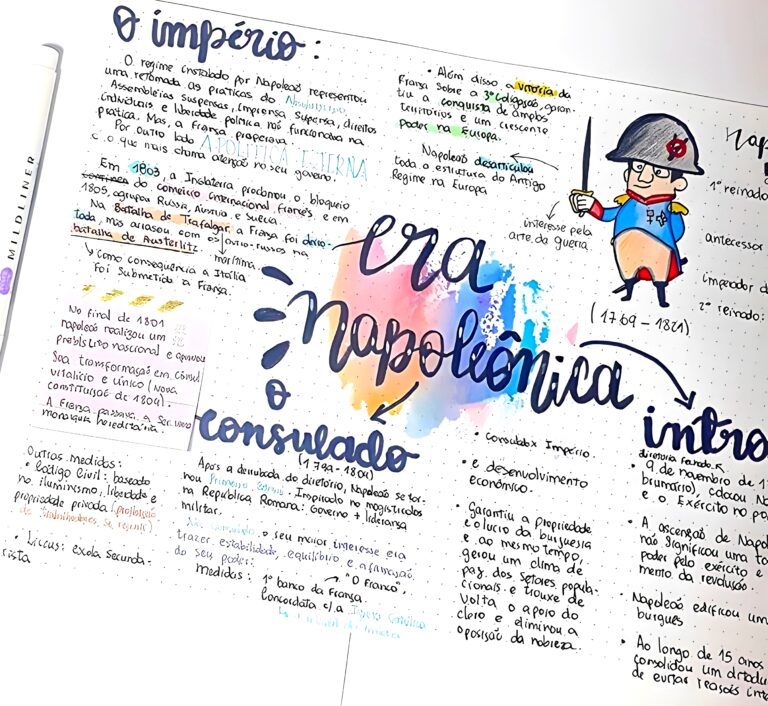 o império:
O regime instalado por Napoleaõ representou
uma retomada as praticas do Absolutismo.
Assembléias suspensas, imprensa supensa, direitos
individuais e liberdade politica naõ funcionava na
pratica. Mas, a França prosperava.
Por outro lado A POLÍTICA EXTERNA
é o que mais chama atenção no seu governo.
Em 1803, a Inglaterra proclamou o bloqueio
do comércio internacional francês, e em
1805, agrupou Rússia, Áustria e Suécia.
Na Batalha de Trafalgar a França foi derro-
tada, mas arrasou com os austro-russos na
batalha de Austerlitz.
marítima
como consequência a Itália
foi submetida a França.
No final de 1801
napoleaõ realizou um
nacional e aprovou
Sua transformação em cônsul
vitalício e único (nova
constituição de 1804).
A França passava a ser uma
monarquia hereditária.
Outras medidas:
• Código Civil: baseado
no iluminismo, liberdade e
propriedade privada (proibição
de trabalhadores se reunir)
• Liceus: escola secunda-
rista
• Além disso a vitória da
França sobre a 3ª Coligação, garan-
tiu a conquista de amplos
territórios e um crescente
poder na Europa.
Napoleaõ desarticulou
toda a estrutura do Antigo
Regime na Europa
interesse pela
arte da guerra
era
Napoleônica
(1769 - 1821)
Nap
1º reinado
antecessor
imperador d
2º reinado:
o
consulado
(1799-1804)
Após a derrubada do diretório, Napoleaõ se tor-
nou Primeiro Cônsul. Inspirado no magistrados
na República Romana: Governo + liderança
militar.
No consulado, o seu maior interesse era
trazer estabilidade, equilíbrio e afirmação
do seu poder:
medidas: 1º banco da França. "O Franco",
Concordata c/ a Igreja Católica
• Consulado x Império.
• e desenvolvimento
econômico.
• Garantiu a propriedade
e o lucro da burguesia
e ao mesmo tempo,
gerou um clima de
paz dos setores popula-
cionais e trouxe de
volta o apoio do
clero e eliminou a
oposição da nobreza.
intro
• 9 de novembro de 1
brumário), colocou Na
e o Exército no po
• A ascenção de Napoleaõ
naõ significou uma to
poder pelo exército e
mento da revolução.
Napoleaõ edificou um
burguês
• Ao longo de 15 anos
consolidou um ditadu
de evitar reações inte
MILDLINER